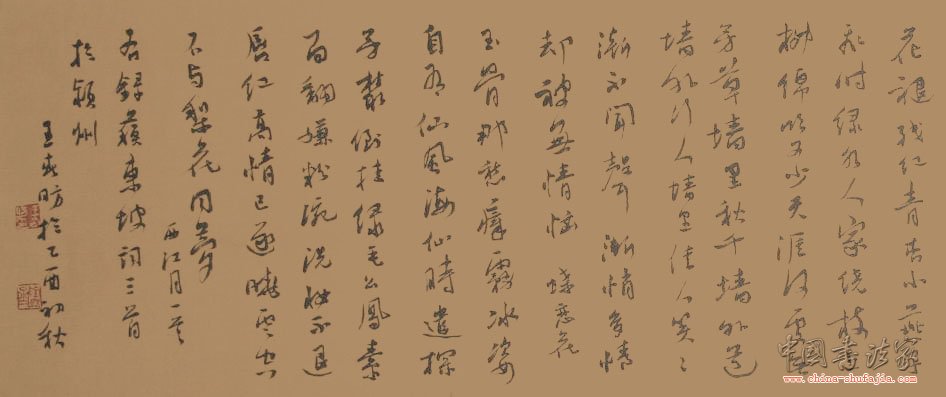 花褪残红青杏小燕
飞时绿水人家绕枝
柳绵吹又少天涯何
芳草墙里秋千墙外道
墙外行人墙里佳人笑々
渐不闻声渐悄多情
却被無情恼 蝶恋花
玉骨那愁瘴霧冰姿
自有仙風海仙時遣探
芳叢倒挂绿毛公鳳素
面翻嫌粉涴洗妝不退
唇红高情已逐曉雲空
不与梨花同夢
西江月一首
右録蘇東坡詞三首
於潁州
王春昉於乙酉初秋
中国書法家
www.china-shufajia.com